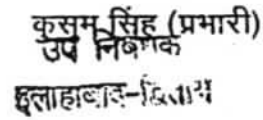 कुसुम सिंह (प्रभारी)
उप निबन्धक
इलाहाबाद-द्वितीय